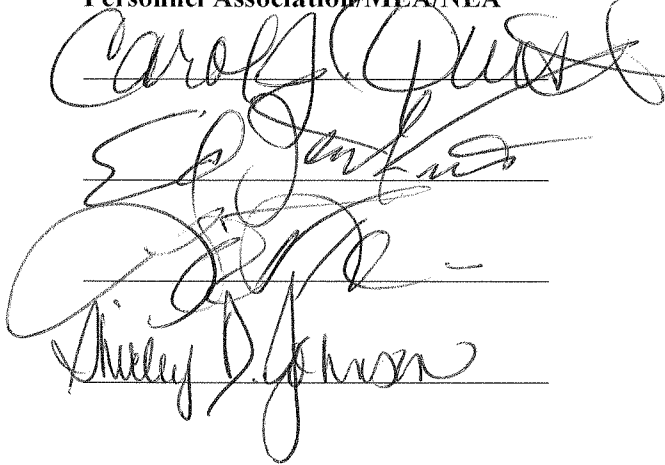 Personnel Association/MEA/NEA
Carol J. Quist
Ed Jenkins
Shirley D. Johnson